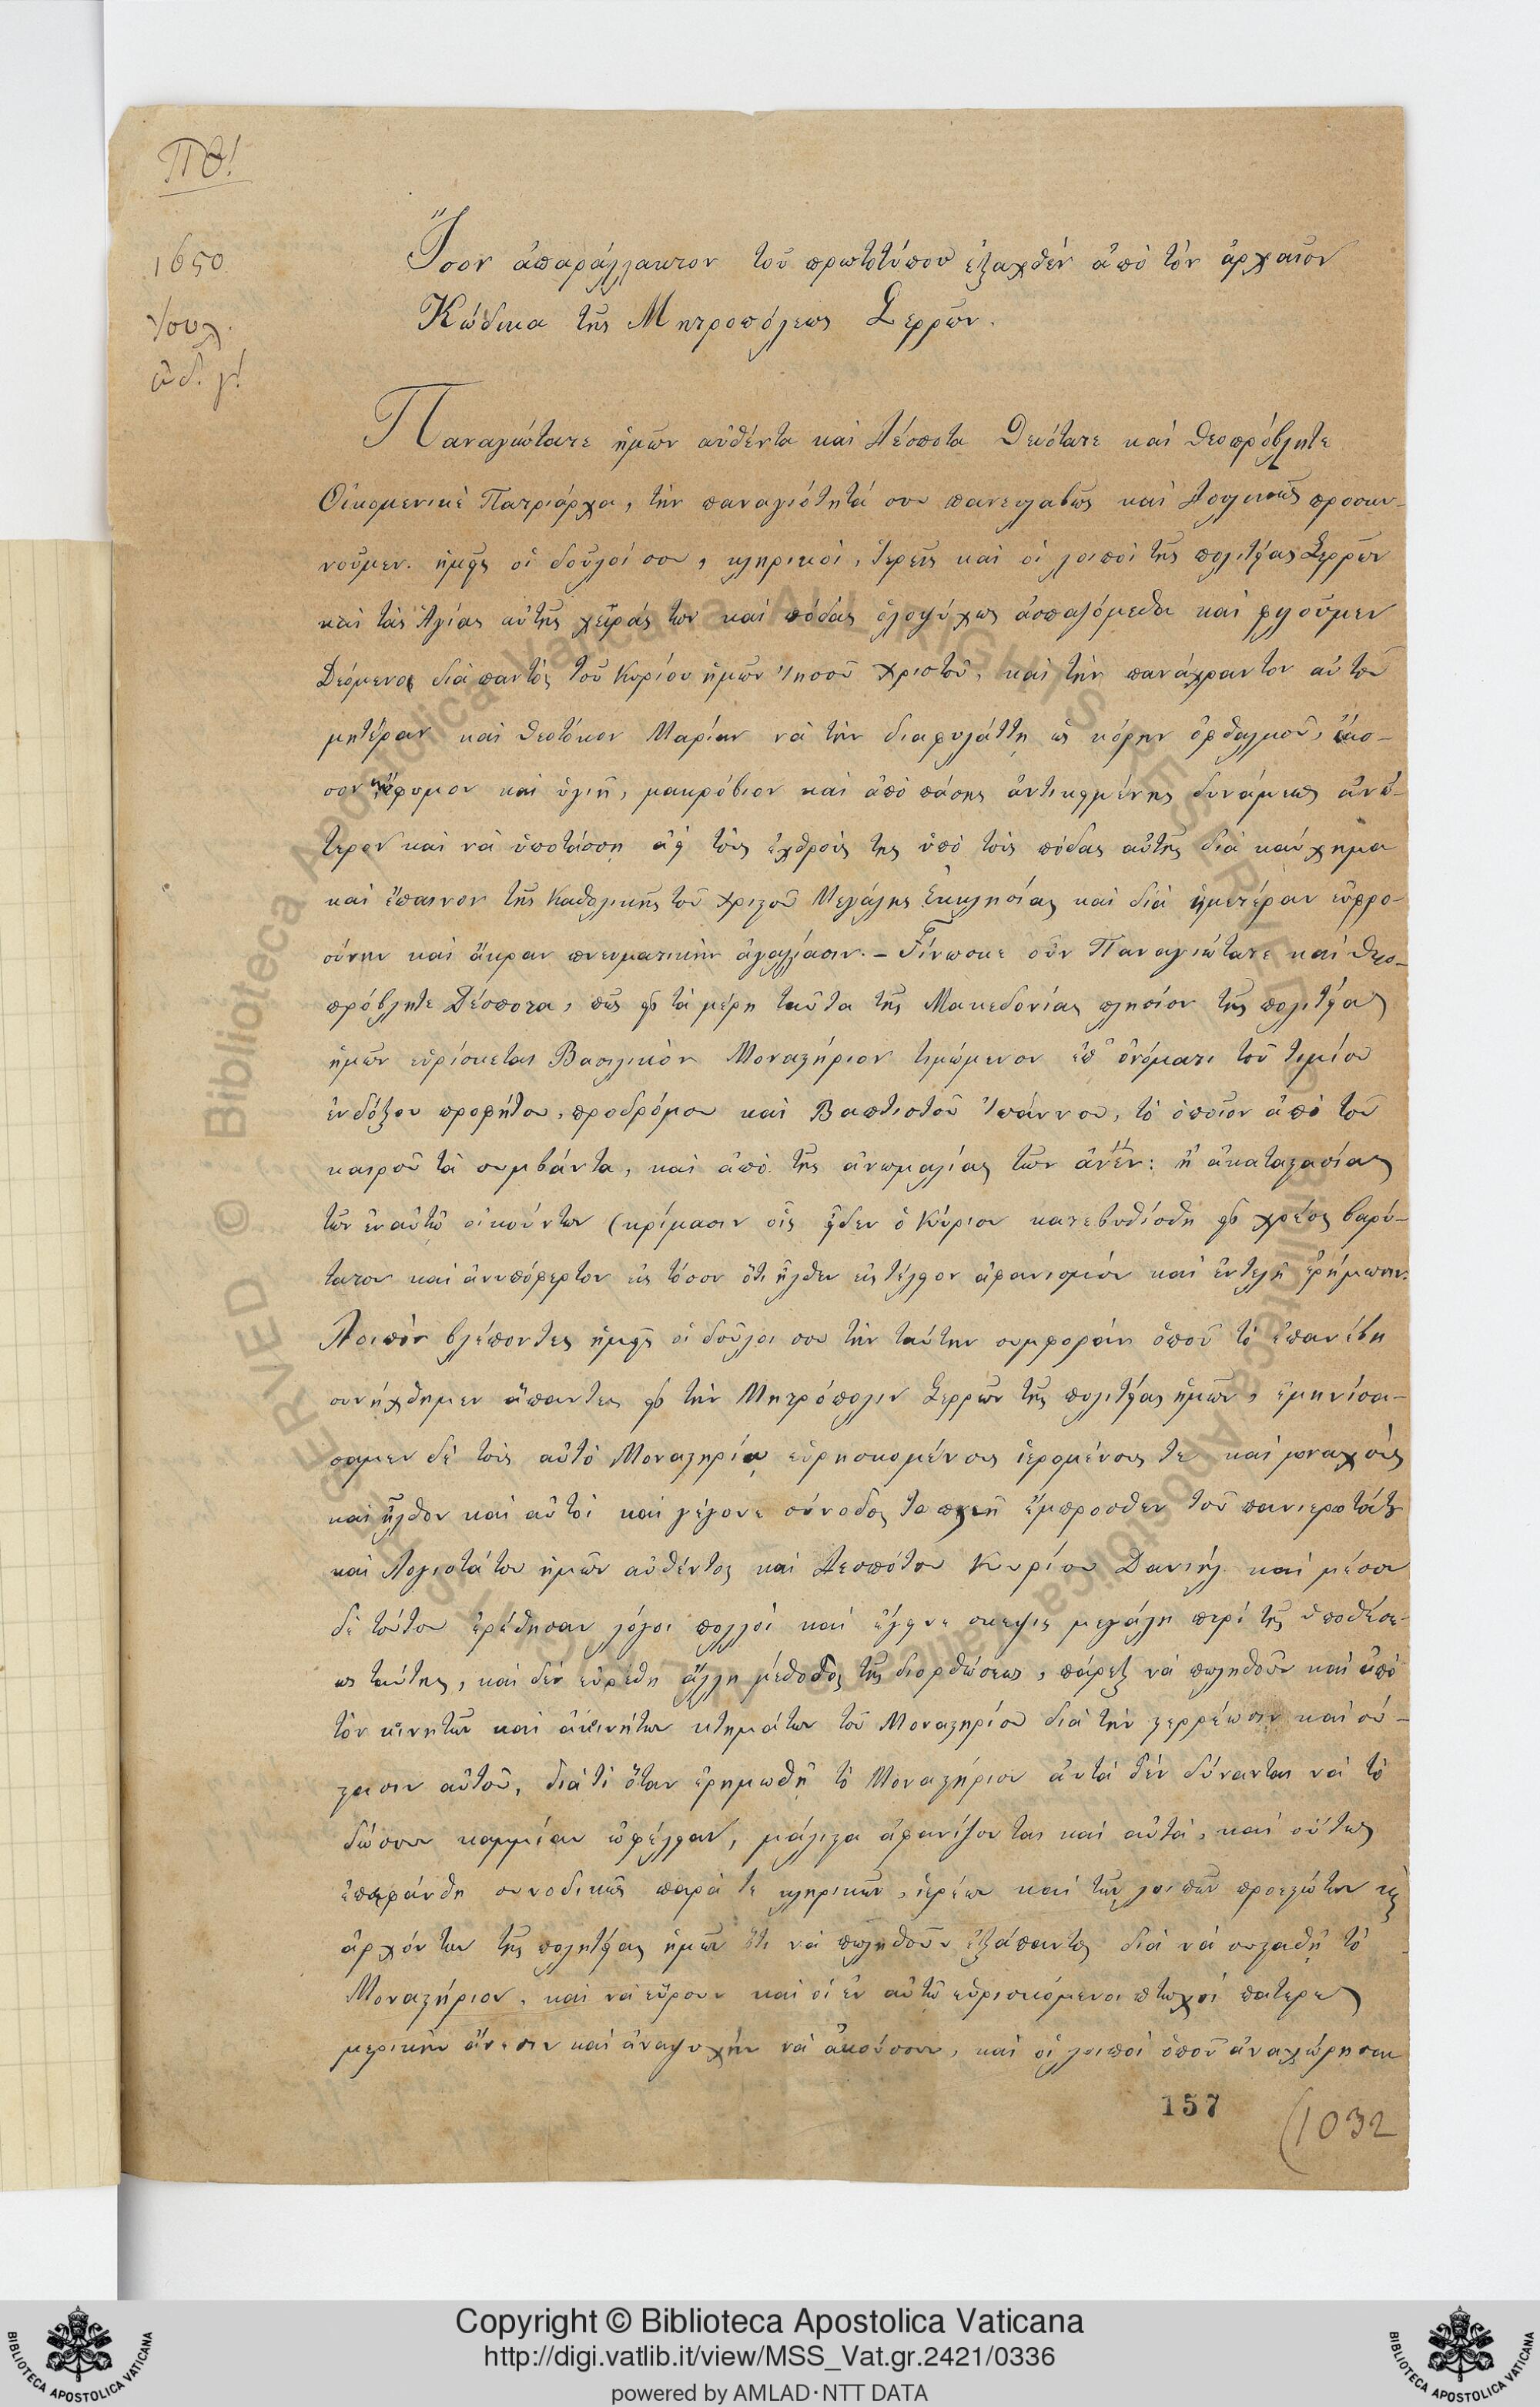 ΠΘ!
1650
Ἰουλ.
ἰνδ. γ!
Ἴσον ἀπαράλλακτον τοῦ πρωτοτύπου ἐξαχθέν ἀπὸ τὸν ἀρχαῖον
Κώδικα τῆς Μητροπόλεως Σερρῶν.
Παναγιώτατε ἡμῶν αὐθέντα καὶ Δέσποτα Θειότατε καὶ θεοπρόβλητε
Οἰκουμενικὲ Πατριάρχα, τὴν παναγιότητά σου πανευλαβῶς καὶ δουλικῶς προσκυ-
νοῦμεν. ἡμεῖς οἱ δοῦλοί σου, κληρικοὶ, ἱερεῖς καὶ οἱ λοιποὶ τῆς πολιτείας Σερρῶν
καὶ τὰς ἁγίας αὐτῆς χεῖράς των καὶ πόδας ὁλοψύχως ἀσπαζόμεθα καὶ φιλοῦμεν
Δεόμενοι διὰ παντὸς τοῦ Κυρίου ἡμῶν Ἰησοῦ Χριστοῦ, καὶ τὴν πανάχραντον αὐτοῦ
μητέραν καὶ θεοτόκον Μαρίαν νὰ τὴν διαφυλάττῃ ὡς κόρην ὀφθαλμοῦ,
καὶ ὑγιῆ, μακρόβιον καὶ ἀπὸ πάσης ἀντικειμένης δυνάμεως ἀνώ-
τερον καὶ νὰ ὑποτάσσῃ ἀεὶ τοὺς ἐχθροὺς της ὑπὸ τοὺς πόδας αὐτῆς διὰ καύχημα
καὶ ἔπαινον τῆς Καθολικῆς τοῦ Χριστοῦ Μεγάλης Ἐκκλησίας καὶ διὰ ἡμετέραν εὐφρο-
σύνην καὶ ἄκραν πνευματικὴν ἀγαλλίασιν. – Γίνωσκε οὖν Παναγιώτατε καὶ θεο-
πρόβλητε Δέσποτα, πῶς εἰς τὰ μέρη ταῦτα τῆς Μακεδονίας πλησίον τῆς πολιτείας
ἡμῶν εὑρίσκεται Βασιλικὸν Μοναστήριον τιμώμενον ἐπ' ὀνόματι τοῦ τιμίου
ἐνδόξου προφήτου, προδρόμου καὶ Βαπτιστοῦ Ἰωάννου, τὸ ὁποῖον ἀπὸ τοῦ
καιροῦ τὰ συμβάντα, καὶ ἀπὸ τῆς ἀνωμαλίας τῶν ἀνῶν: ἢ ἀκαταστασίας
τῶν ἐν αὐτῷ οἰκούντων (κρίμασιν οἷς οἶδεν ὁ Κύριος κατεβυθίσθη εἰς χρέος βαρύ-
τατον καὶ ἀνυπόφερτον εἰς τόσον ὅτι ἦλθεν εἰς τέλειον ἀφανισμὸν καὶ ἐντελῆ ἐρήμωσιν.
Λοιπὸν βλέποντες ἡμεῖς οἱ δοῦλοι σου τὴν ταύτην συμφορὰν ὁποῦ τὸ ἐπανέβη
συνήχθημεν ἅπαντες εἰς τὴν Μητρόπολιν Σερρῶν τῆς πολιτείας ἡμῶν, ἐμηνύσα-
σαμεν δὲ τοὺς αὐτὸ Μοναστηρίῳ εὑρησκομένους ἱερομένους τε καὶ μοναχοὺς
καὶ ἦλθον καὶ αὐτοὶ καὶ γέγονε σύνοδος ἔμπροσθεν τοῦ πανιερωτάτου
καὶ Λογιοτάτου ἡμῶν αὐθέντος καὶ Δεσπότου Κυρίου Δανιήλ καὶ μέσον
δὲ τούτου ἐρέθησαν λόγοι πολλοὶ καὶ ἔγεινε σκέψις μεγάλη περὶ τῆς ὑποθέσε-
ως ταύτης, καὶ δὲν εὑρέθη ἄλλη μέθοδος τῆς διορθώσεως, πάρεξ νὰ πωληθοῦν καὶ ἀπὸ
τὸν κινητῶν καὶ ἀκινήτων κτημάτων τοῦ Μοναστηρίου διὰ τὴν στερρέωσιν καὶ σύ-
στασιν αὐτοῦ, διὰ τὶ ὅταν ἐρημωθῇ τὸ Μοναστήριον αὐτὰ δὲν δύνανται νὰ τὸ
δώσουν καμμίαν ὠφέλειαν, μάλιστα ἀφανίζονται καὶ αὐτά, καὶ οὕτως
ἐπεφάνθη συνοδικῶς παρὰ τε κληρικῶν, ἱερέων καὶ τῶν λοιπῶν προεστώτων κὶ
ἀρχόντων τῆς πολητείας ἡμῶν ὅτι νὰ πωληθοῦν ἐξάπαντος διὰ νὰ συσταθῇ τὸ
Μοναστήριον, καὶ νὰ εὕρουν καὶ οἱ ἐν αὐτῷ εὑρισκόμενοι πτωχοὶ πατέρες
μερικὴν ἄνεσιν καὶ ἀναψυχὴν νὰ ἀκούσουν, καὶ οἱ λοιποὶ ὁποῦ ἀναχώρησαν
157
(1032
Copyright © Biblioteca Apostolica Vaticana
http://digi.vatlib.it/view/MSS_Vat.gr.2421/0336
powered by AMLAD·NTT DATA
BIBLIOTECA APOSTOLICA VATICANA
BIBLIOTECA APOSTOLICA VATICANA